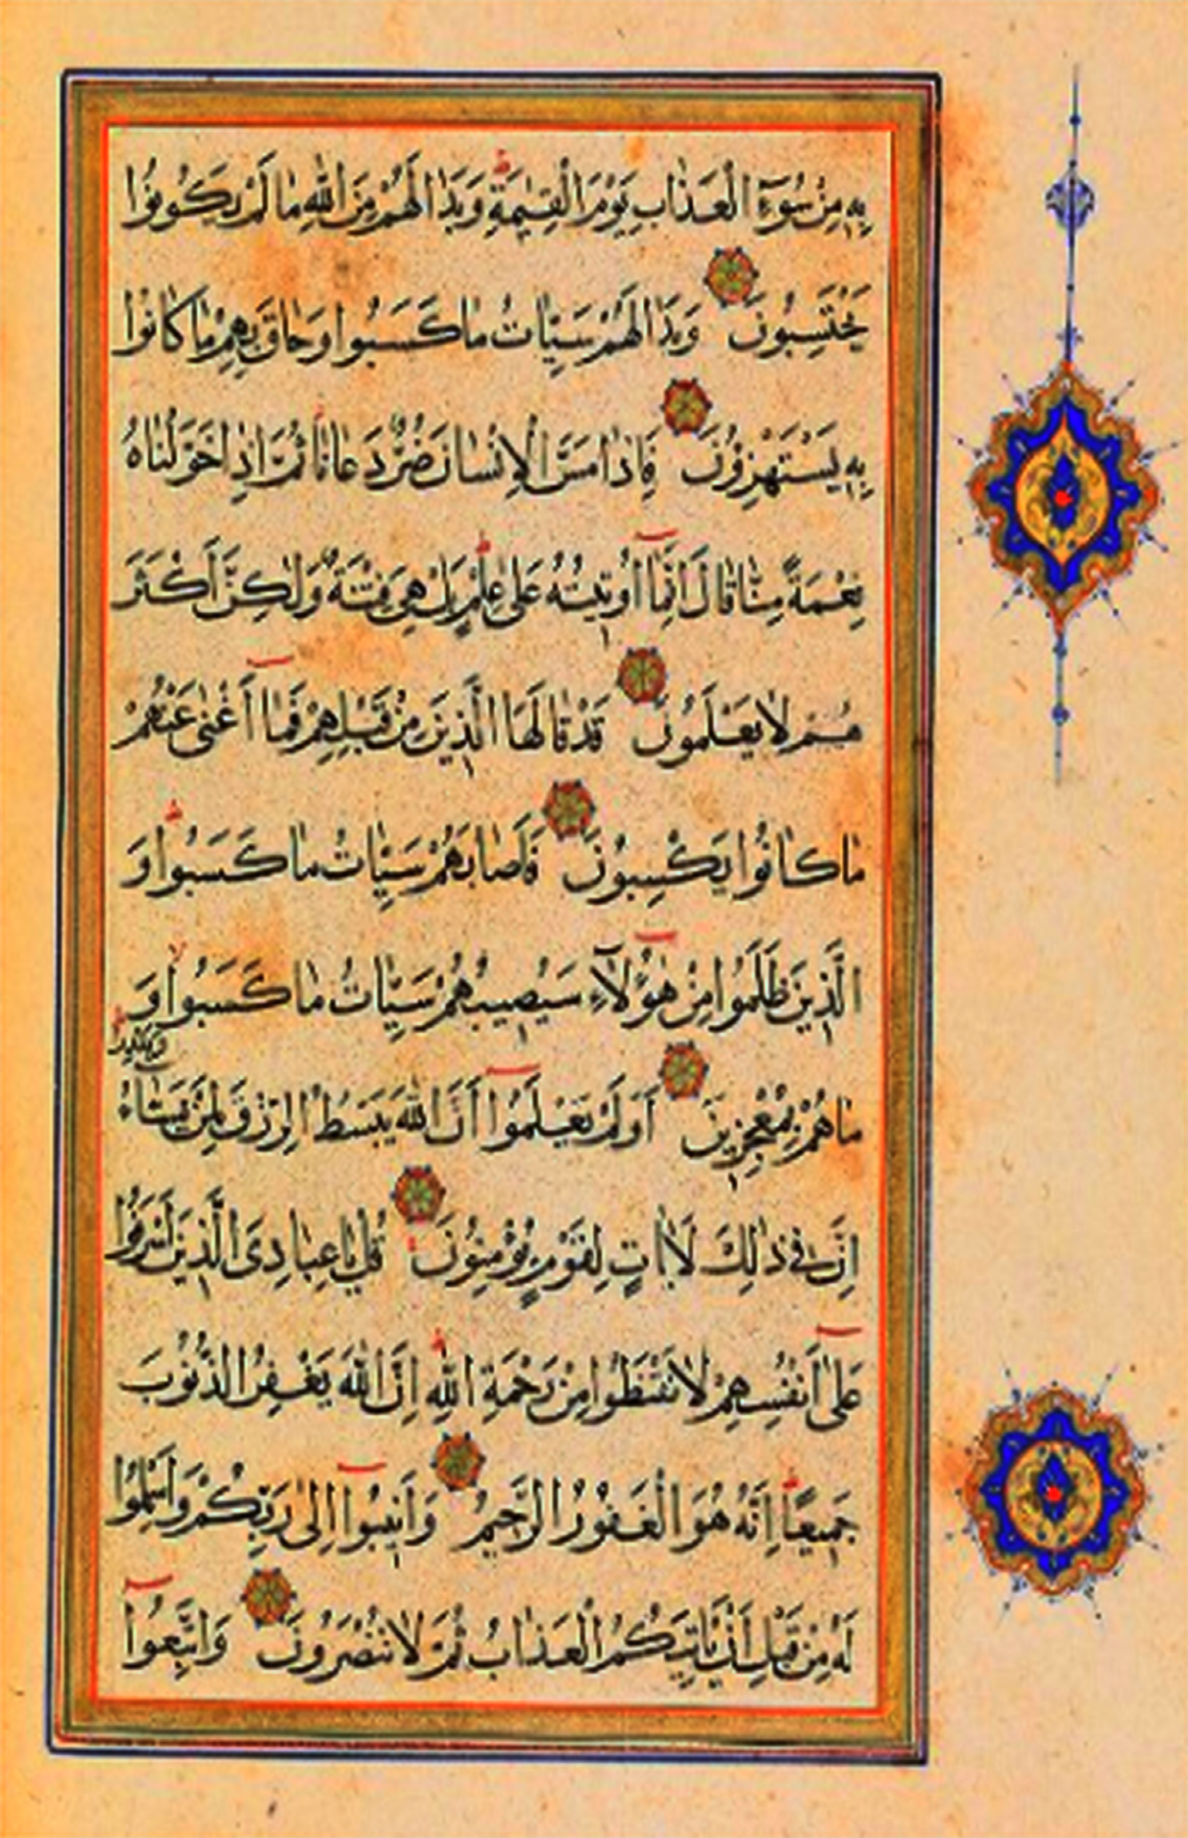 بِهِ مِنْ سُوءِ الْعَذَابِ يَوْمَ الْقِيٰمَةِ وَبَدَا لَهُمْ مِنَ اللّٰهِ مَا لَمْ يَكُونُوا
يَحْتَسِبُونَ وَبَدَا لَهُمْ سَيِّاٰتُ مَا كَسَبُوا وَحَاقَ بِهِمْ مَا كَانُوا
بِهِ يَسْتَهْزِؤُنَ فَاِذَا مَسَّ الْاِنْسَانَ ضُرٌّ دَعَانَا ثُمَّ اِذَا خَوَّلْنَاهُ
نِعْمَةً مِنَّا قَالَ اِنَّمَا اُوتِيتُهُ عَلٰى عِلْمٍ بَلْ هِيَ فِتْنَةٌ وَلٰكِنَّ اَكْثَرَ
هُمْ لَا يَعْلَمُونَ قَدْ قَالَهَا الَّذِينَ مِنْ قَبْلِهِمْ فَمَا اَغْنٰى عَنْهُمْ
مَا كَانُوا يَكْسِبُونَ فَاَصَابَهُمْ سَيِّاٰتُ مَا كَسَبُوا وَ
الَّذِينَ ظَلَمُوا مِنْ هٰؤُلَاءِ سَيُصِيبُهُمْ سَيِّاٰتُ مَا كَسَبُوا وَ
مَا هُمْ بِمُعْجِزِينَ اَوَلَمْ يَعْلَمُوا اَنَّ اللّٰهَ يَبْسُطُ الرِّزْقَ لِمَنْ يَشَاءُ وَيَقْدِرُ
اِنَّ فِي ذٰلِكَ لَاٰيَاتٍ لِقَوْمٍ يُؤْمِنُونَ قُلْ يَا عِبَادِيَ الَّذِينَ اَسْرَفُوا
عَلٰى اَنْفُسِهِمْ لَا تَقْنَطُوا مِنْ رَحْمَةِ اللّٰهِ اِنَّ اللّٰهَ يَغْفِرُ الذُّنُوبَ
جَمِيعًا اِنَّهُ هُوَ الْغَفُورُ الرَّحِيمُ وَاَنِيبُوا اِلٰى رَبِّكُمْ وَاَسْلِمُوا
لَهُ مِنْ قَبْلِ اَنْ يَاْتِيَكُمُ الْعَذَابُ ثُمَّ لَا تُنْصَرُونَ وَاتَّبِعُوا